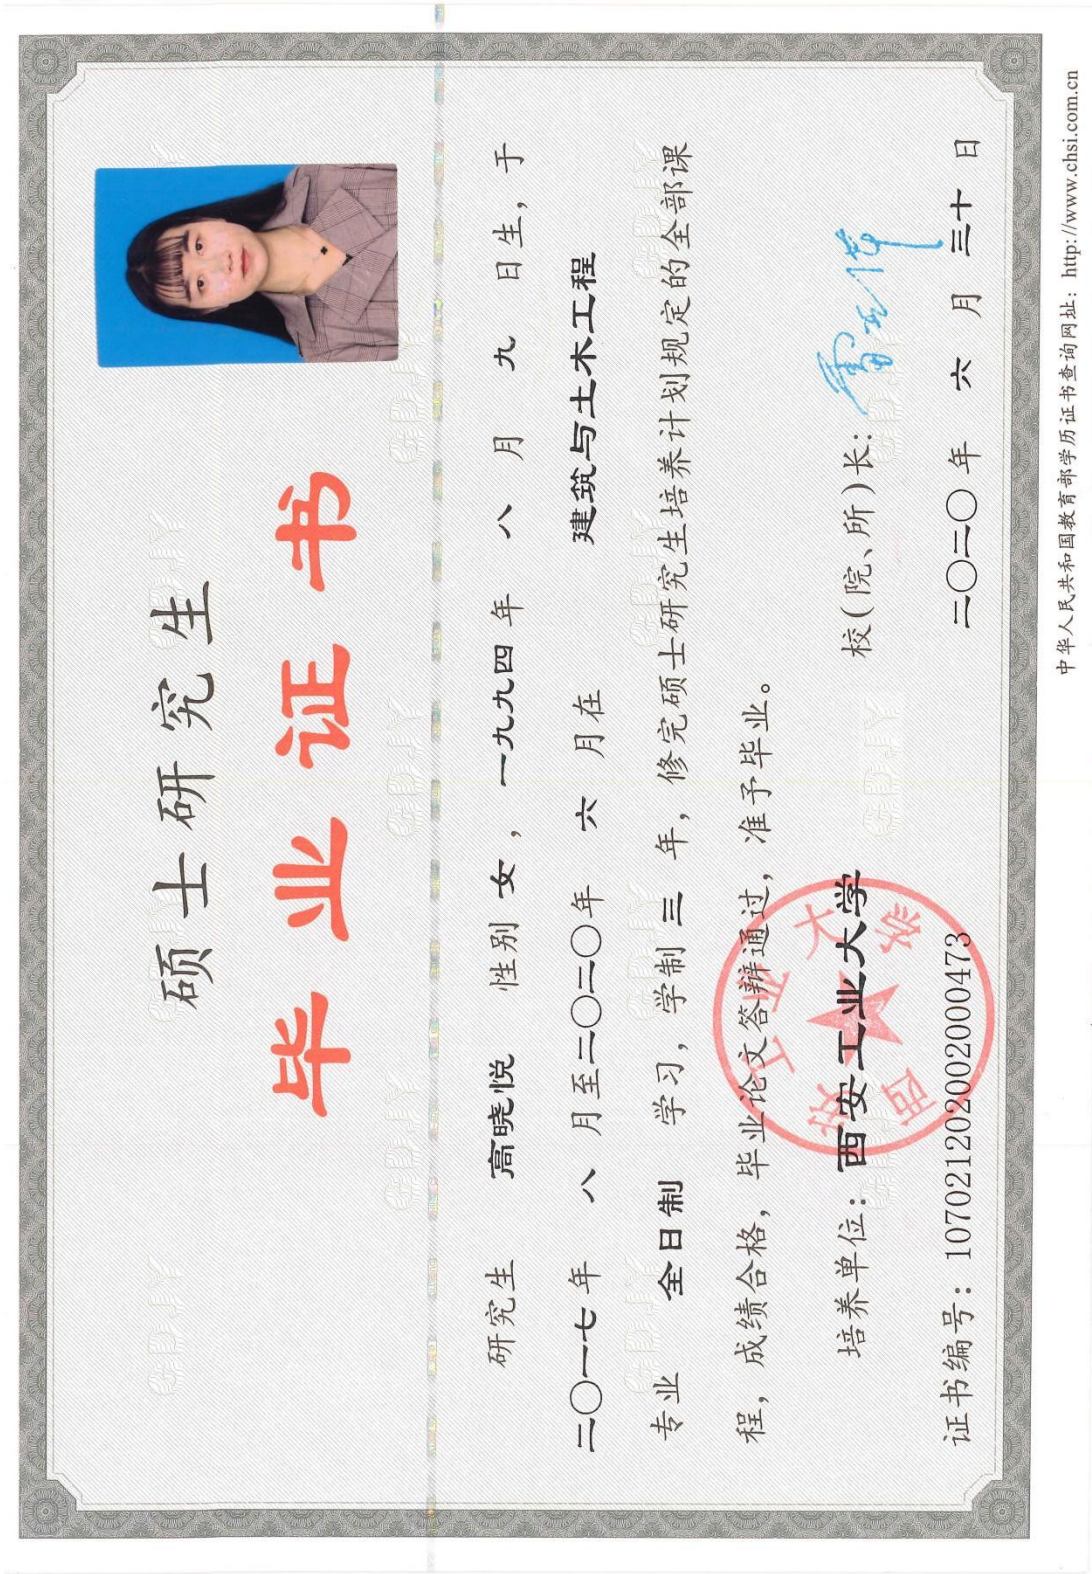 硕士研究生
毕业证书
研究生 高晓悦 性别 女，一九九四 年 八 月 九 日生，于
二〇一七年 八 月至二〇二〇年 六 月在 建筑与土木工程
专业 全日制 学习，学制 三 年，修完硕士研究生培养计划规定的全部课
程，成绩合格，毕业论文答辩通过，准予毕业。
培养单位：西安工业大学 校(院、所)长：
证书编号：107021202002000473 二〇二〇 年 六 月 三十 日
西安工业大学
中华人民共和国教育部学历证书查询网址：http://www.chsi.com.cn